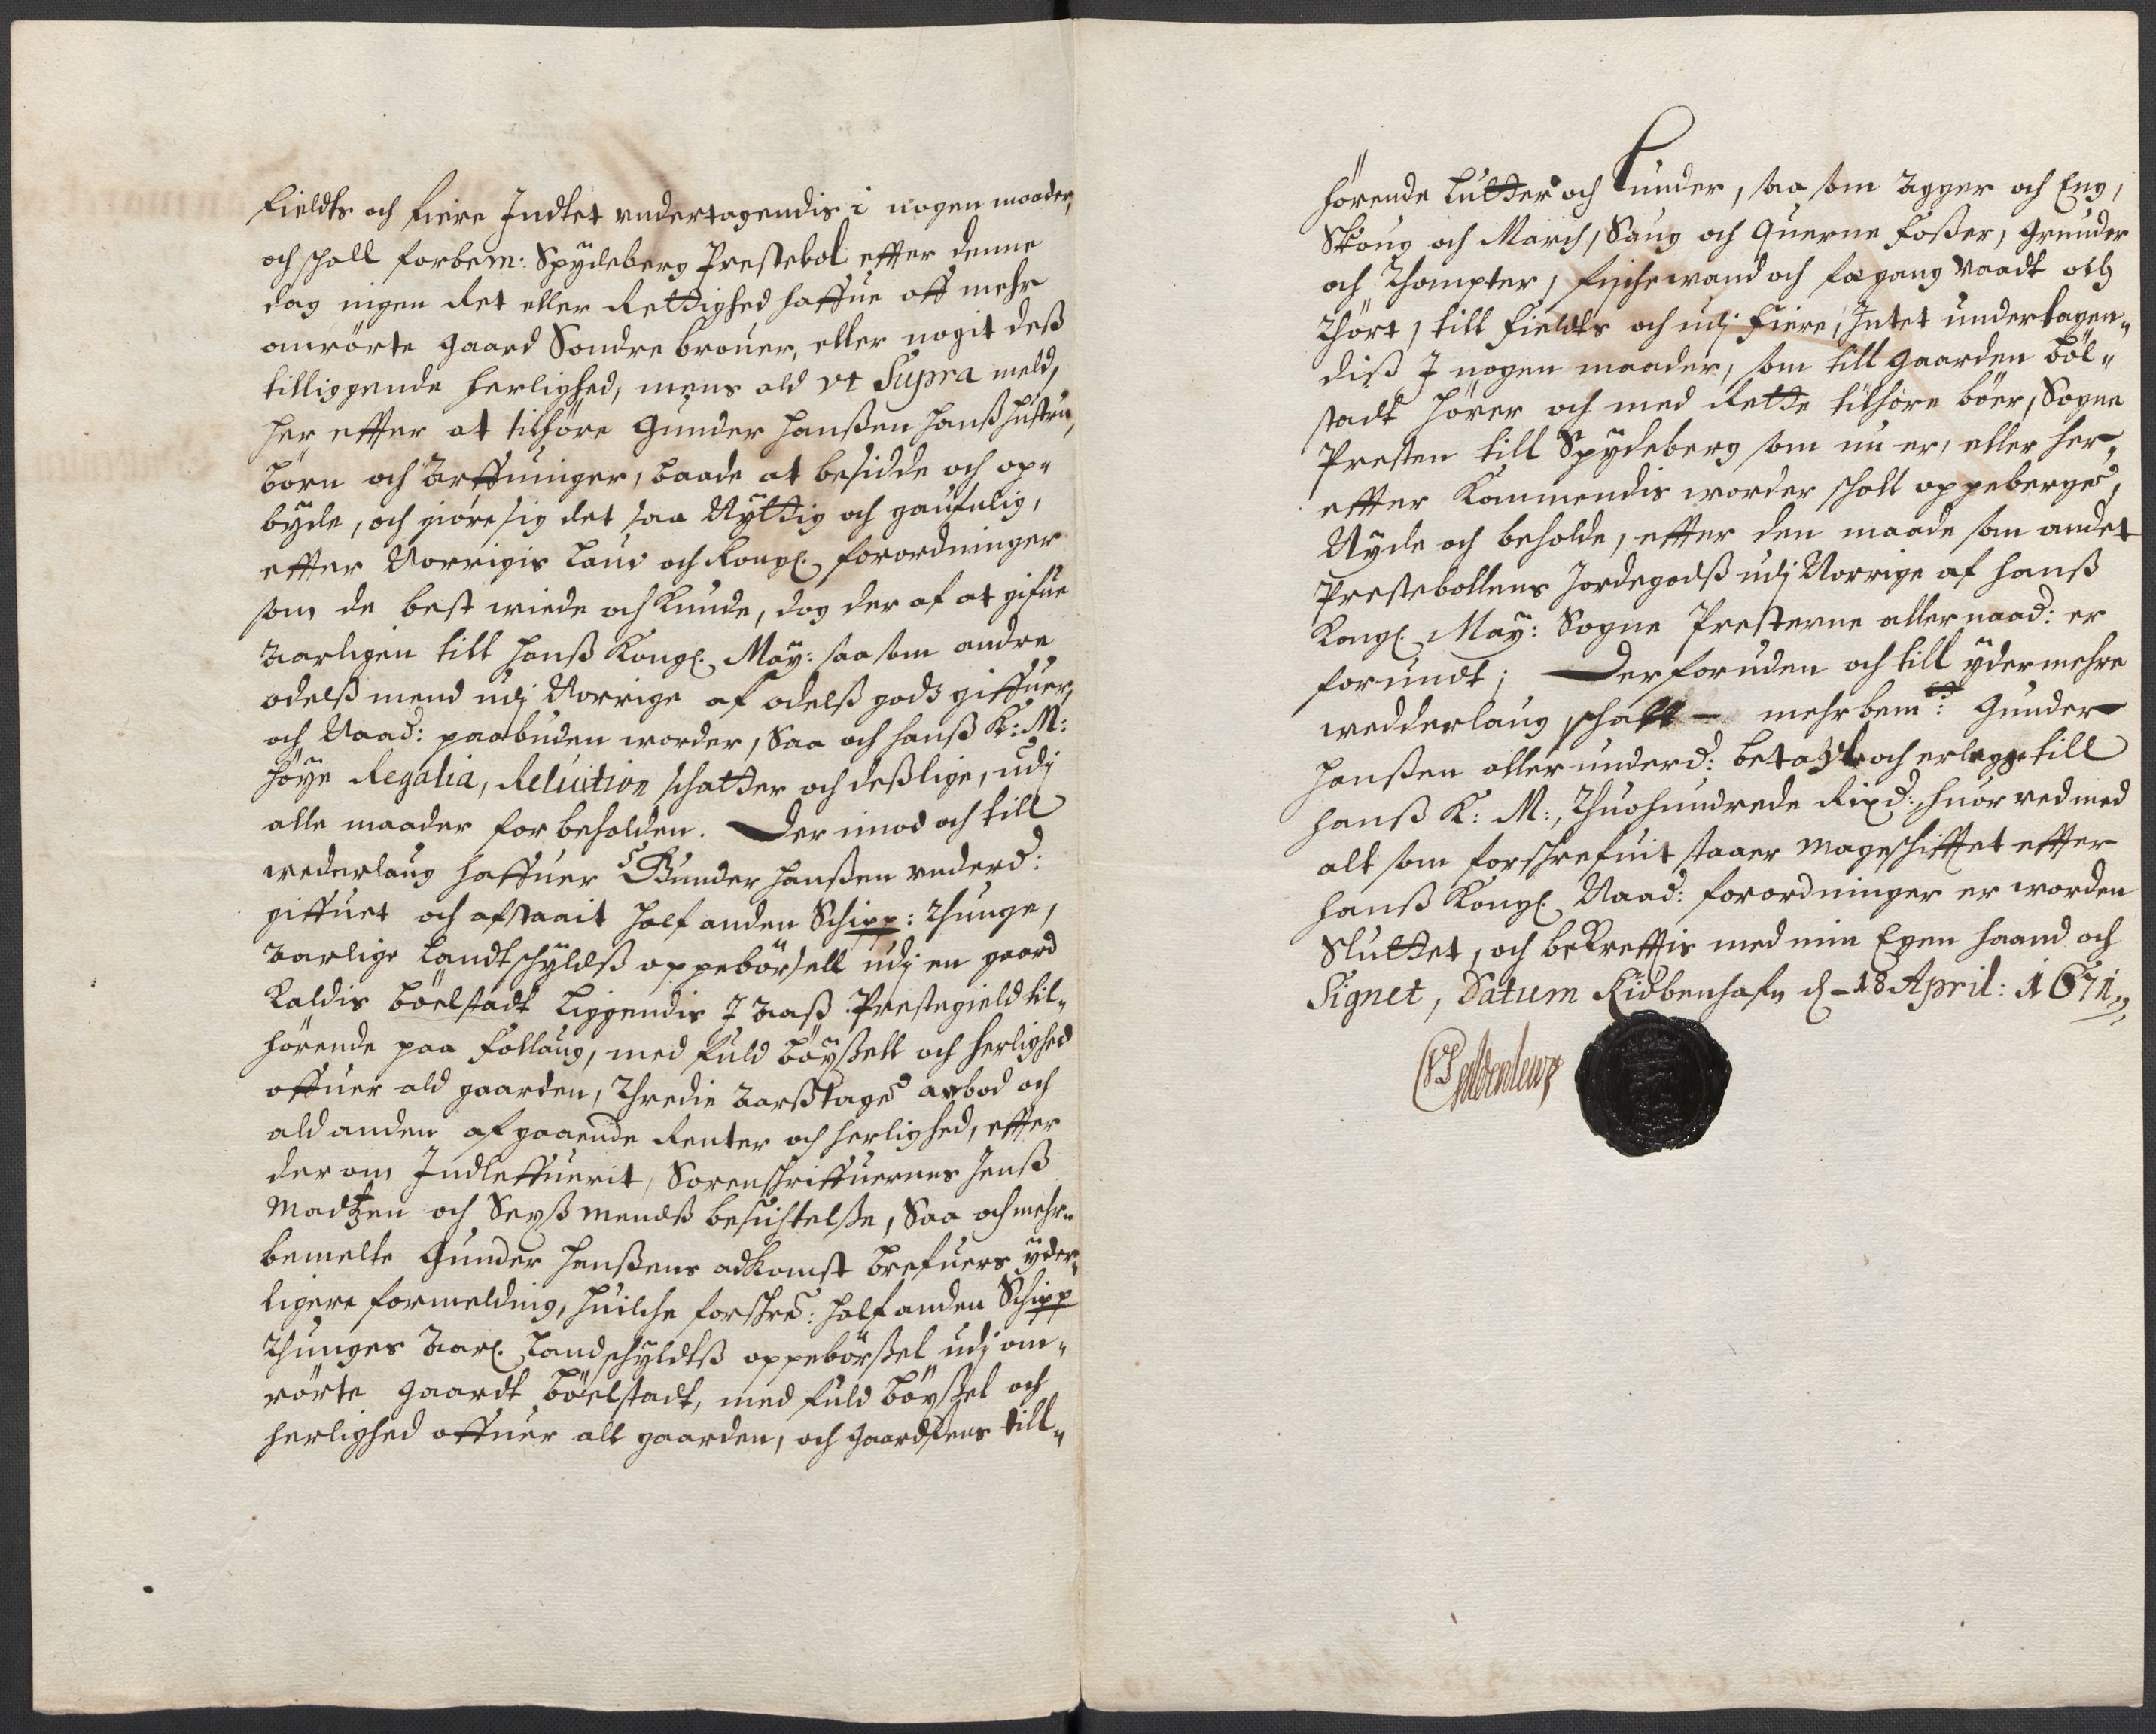 fieldts och fiere Indtet undertagendis i nogen maader,
och schall forbem: Spydeberg Prestebol effter denne
dag ingen Ret eller Rettighed haffue off mehr
anrörte gaard Sondre brouer, eller nogit deß
tilliggende herlighed, mens ald vt Supra meld,
her effter at tilhöre Gunder Hanßen hanß hustru,
börn och Arffuinger, baade at besidde och op-
byde, och giöre sig det saa Nyttig och gaufnlig,
effter Norrigis Laug och Kongl. forordninger
som de best wiede och kunde, dog der af at gifue
Aarligen till Hanß Kongl. May: saa som andre
odelß mend udj Norrige af odelß gods giffuer,
och Naad: paabuden worder, Saa och hanß K: M:
höye Regalia, Relution schatter och deßlige, udj
alle maader forbeholden. Der imod och till
wederlaug haffuer Gunder Hanßen underd:
giffuet och afstaait half anden Schipp: Thunge,
Aarlige Landtschyldß oppebörsell udj en gaard
Kaldis Böelstadt liggendis I Aaß Prestegield til-
hörende paa Follaug, med fuld böyßell och herlighed
offuer ald gaarden, Thredie Aarßtage arbod och
ald anden afgaaende Renter och herlighed, effter
der om Indleffuerit, Sorenschriffuernes Jenß
Madtzen och Sexß mendß besichtelße, Saa och mehr-
bemelte Gunder Hanßens adkomst brefuers yder-
ligere formelding, huilche forschr: half anden Schipp
Thunges Aarl. Landschyldtß oppebörßel udj om-
rörte gaardt Böelstadt, med fuld böyßel och
herlighed offuer alt gaarden, och gaardtens till-
hörende lutter och lunder, saa som Agger och Eng,
Skoug och March, Saug och Querne foßer, grunder
och Thompter, fischewand och fægang Vaadt och
Thört, till fieldts och udj fiere, Intet undertagen-
diß I nogen maader, som till gaarden Böl-
stadt hörer och med Rette tilhöre böer, Sogne
Presten till Spydeberg som nu er, eller her-
effter kommendis worder schall oppeberge,
Nyde och beholde, effter den maade som andet
Prestebollens Jordegodß udj Norrige af hanß
Kongl. May: Sogne Presterne allernaad: er
forundt; Derforuden och till ydermehre
wedderlaug schall - mehrbem: Gunder
Hanßen allerunderd: betahle och erlegge till
Hanß K: M:, Thuohundrede Rixd:, huor ved med
alt som forschrefuit staaer mageschifftet effter
hanß Kongl. Naad: forordninger er worden
Sluttet, och bekrefftis med min Egen haand och
Signet, Datum Kiöbenhafn d - 18 April: 1671,,